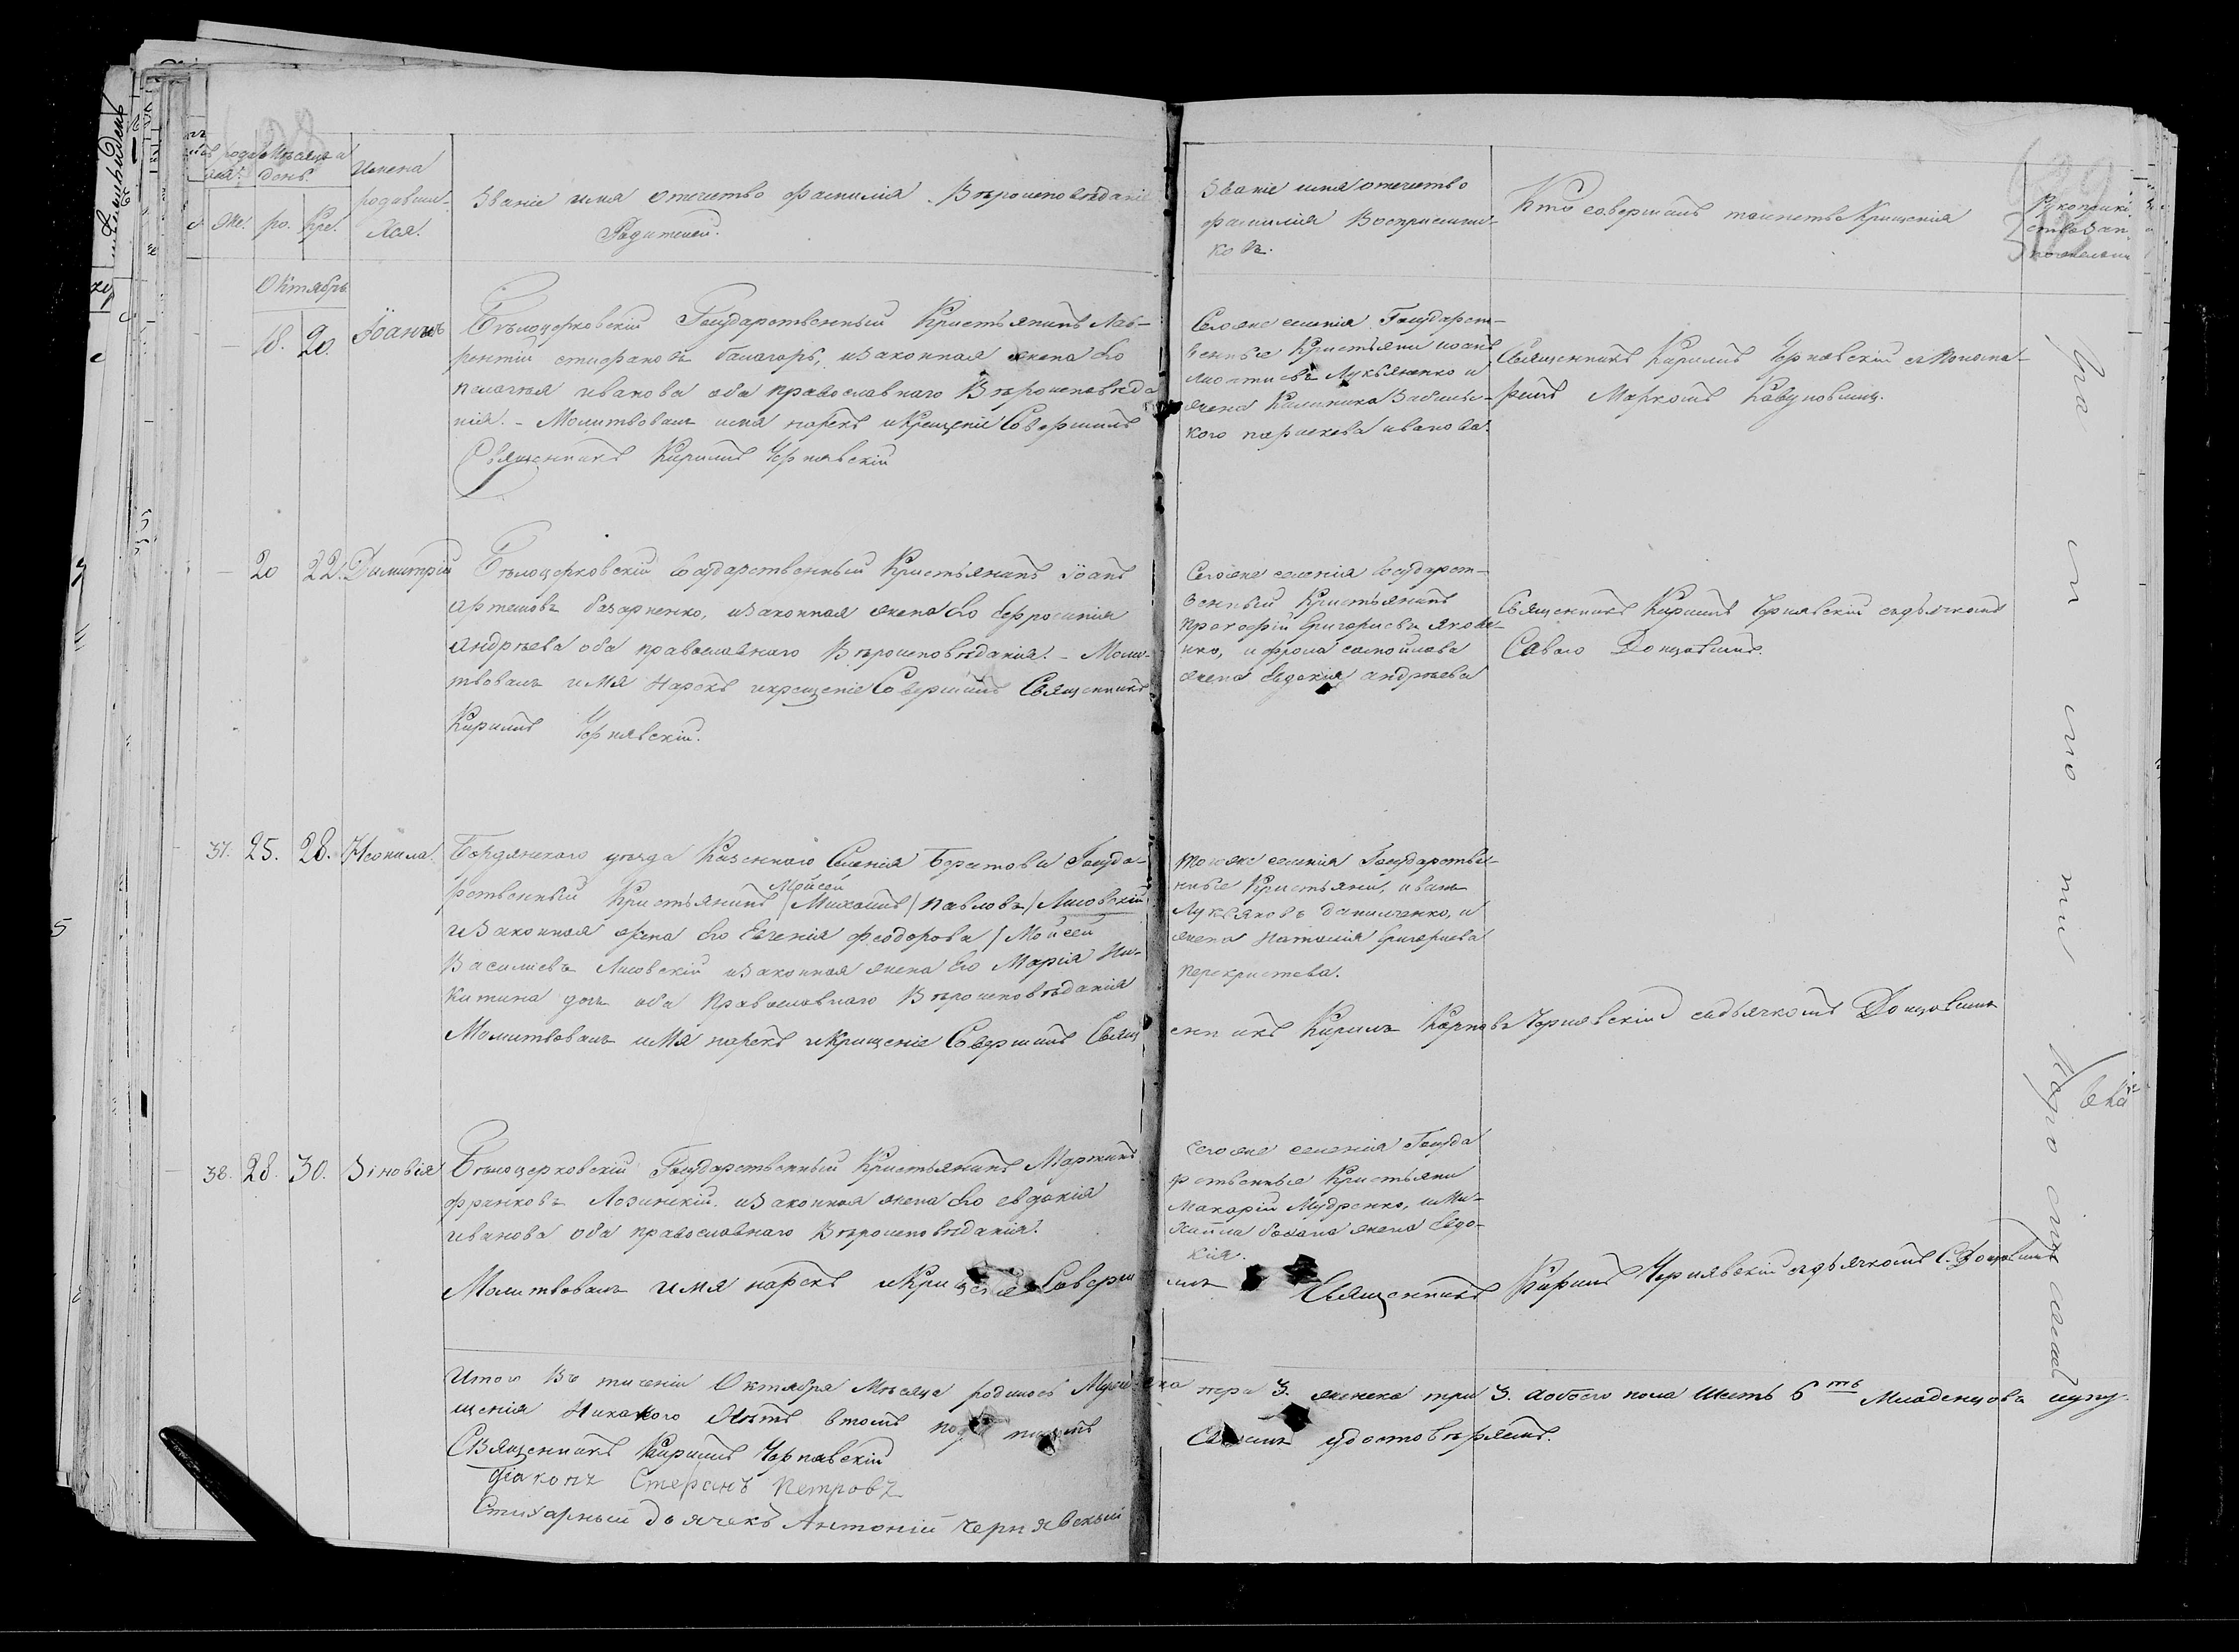 Мѣсяца
день.
Имена
родивши-
хся.
Званіе имя отечество фамилія. Вѣроисповѣданіе
Родителей.
Званіе имя отечество
фамилія Воспріемни-
ковъ.
Кто совершалъ таинство Крищенія
Рукоприкл.
ство Зап.
по желанію
же. ро. кре.
Октябрь
18. 20. Іоаннъ
Бѣлоцерковскій Государственный Кристьянинъ Лав-
рентій стефановъ балагоръ, изаконная жена Его
пелагея иванова оба православнаго Вѣроисповѣда
нія. - Молитвовалъ имя нарекъ икрещеніе Совершилъ
Священникъ Кирилъ Чернявскій
Сегоже селенія Государст-
венные Кристьяни иоанъ
Лукьяненко и
жена Калиника
кого параскева иванова.
Священникъ Кирилъ Чернявскій съ Понома-
ремъ Маркомъ
20 22. Димитрій
Бѣлоцерковскій Государственный Кристьянинъ Іоанъ
артемовъ базарненко, изаконная жена Его Ефросинія
андрѣева оба православнаго Вѣроисповѣданія. - Моли-
твовалъ имя Нарекъ икрещеніе Совершилъ Священникъ
Кирилъ Чернявскій.
Сегоже селенія Государст-
венный Кристьянинъ
прокофій Григориевъ Якове-
нко, и фрола самойлова
жена Евдокія андрѣева
Священникъ Кирилъ Чернявскій съдьячкомъ
Савою Донцовымъ.
37. 25. 28. Неонила.
Бердянского уѣзда Казенного Селенія Берестовы Госуда-
рственный Кристьянинъ /Михаилъ/ павловъ/ Лисовскій
Мойсей
изаконная жена Его Евгенія феодорова / Мойсей
Василиевъ Лисовскій изаконная жена Его Марія Ни-
китина дочь оба Православнаго Вѣроисповѣданія
Молитвовалъ имя нарекъ икрищеніе Совершилъ Свящ
енникъ Кирилъ Карповъ Чернявскій съдьячкомъ Донцовымъ
тогоже селенія Государстве-
нные Кристьяни, иванъ
Лукьяновъ данильченко, и
жена Наталія Григориева
перекристева.
38. 28. 30. Зіновія
Бѣлоцерковскій Государственный Кристьянинъ Мартинъ
франковъ Лозинскій изаконная жена Его евдокія
иванова оба православнаго Вѣроисповѣданія.
Молитвовалъ имя нарекъ икрищеніе Соверш
илъ Священникъ Кирилъ Чернявскій съдьячкомъ С. Донцовымъ
Сегоже селенія Госуда
рственные Кристьяни
Макарій Мудренко, иМи-
хаила жена Евдо-
кія.
Итого Въ теченіи Октября Мѣсяца родилось Мужеска
пера 3. женска три 3. абоего пола шесть 6 ть Младенцовъ
щенія Никакого Нѣтъ втомъ
Священникъ Кирилъ Чернявскій
діаконъ Стефанъ Петровъ
Стихарный дьячекъ Антоній Чернявскый
удостовѣряемъ.